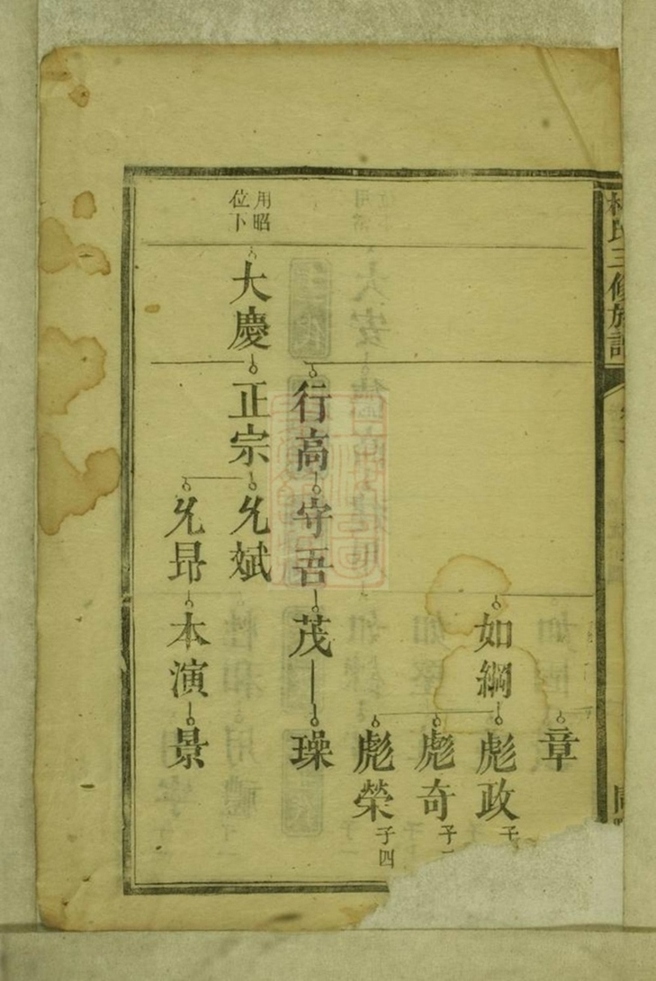 氏三修族譜
章
如綱
彪政
彪奇
彪榮 子四
行高
守吾
茂
璪
用昭位下
大慶
正宗
允斌
允昻
本演
景